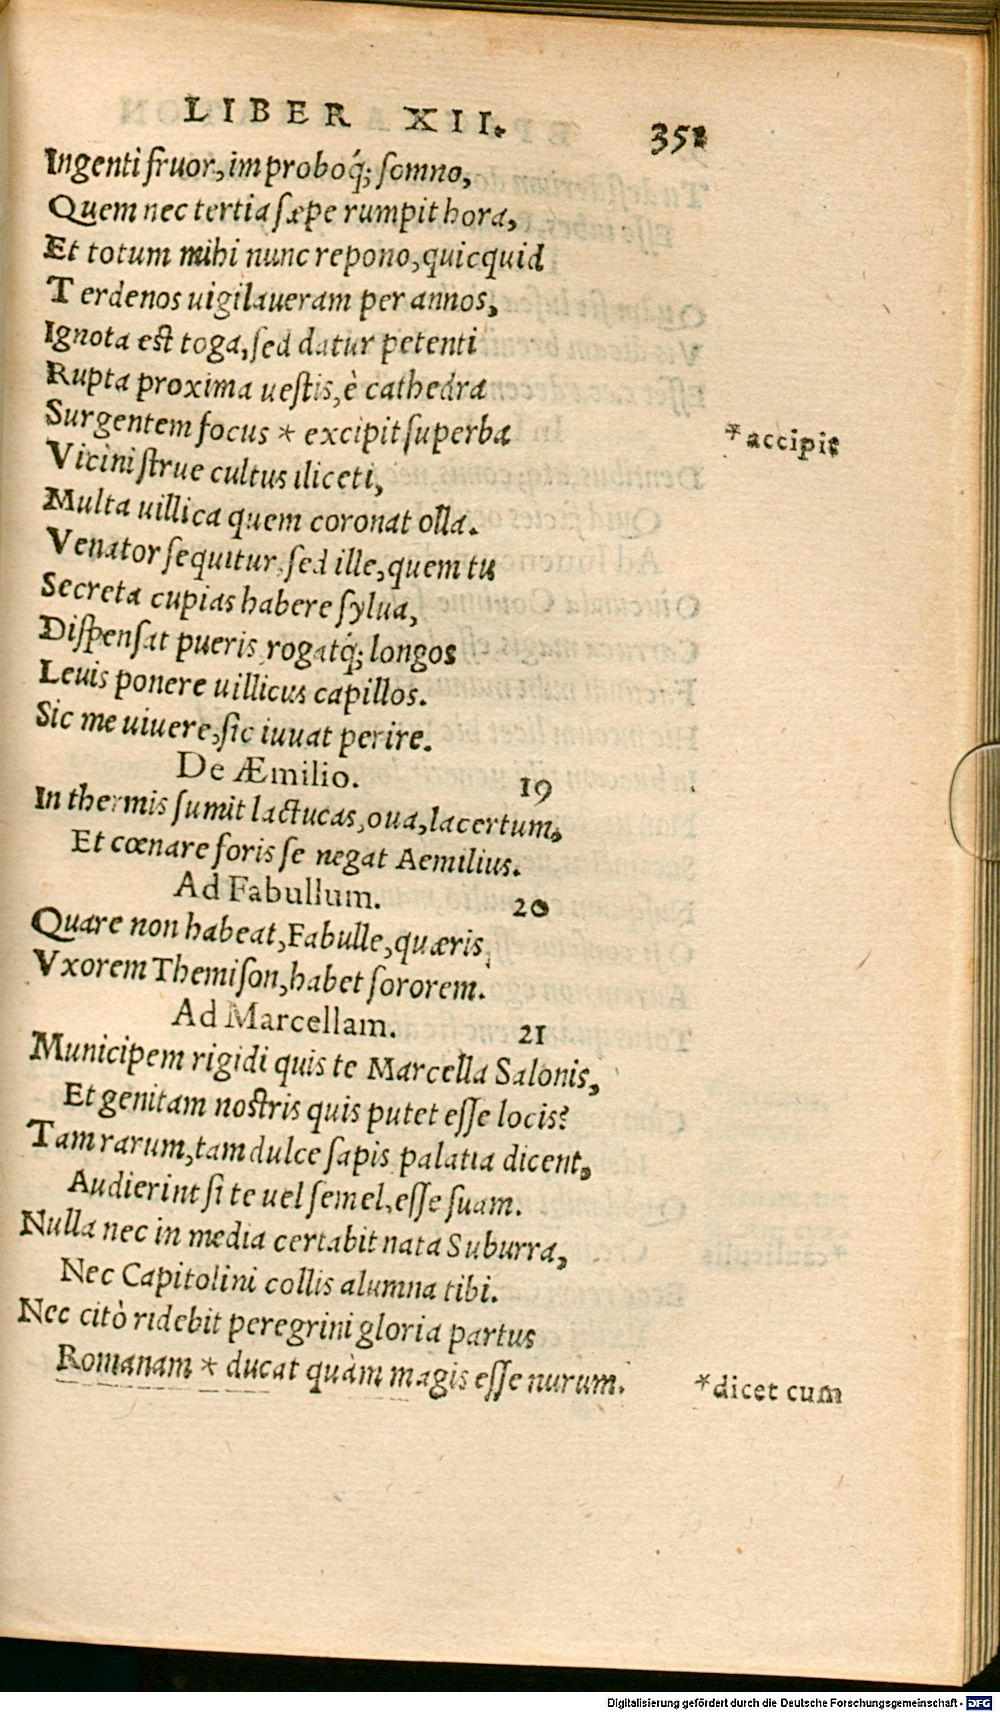 LIBER XII. 351
Ingenti fruor, improboq́; somno,
Quem nec tertia sæpe rumpit hora,
Et totum mihi nunc repono, quicquid
Terdenos uigilaueram per annos,
Ignota est toga, sed datur petenti
Rupta proxima uestis, è cathedra
Surgentem focus * excipit superba *accipit
Vicini strue cultus iliceti,
Multa uillica quem coronat olla.
Venator sequitur, sed ille, quem tu
Secreta cupias habere sylua,
Dispensat pueris, rogatq́; longos
Leuis ponere uillicus capillos.
Sic me uiuere, sic iuuat perire.
De Æmilio. 19
In thermis sumit lactucas, oua, lacertum,
Et cœnare foris se negat Aemilius.
Ad Fabullum. 20
Quare non habeat, Fabulle, quæris,
Vxorem Themison, habet sororem.
Ad Marcellam. 21
Municipem rigidi quis te Marcella Salonis,
Et genitam nostris quis putet esse locis?
Tam rarum, tam dulce sapis palatia dicent,
Audierint si te uel semel, esse suam.
Nulla nec in media certabit nata Suburra,
Nec Capitolini collis alumna tibi.
Nec citò ridebit peregrini gloria partus
Romanam * ducat quàm magis esse nurum. *dicet cum
Digitalisierung gefördert durch die Deutsche Forschungsgemeinschaft - DFG